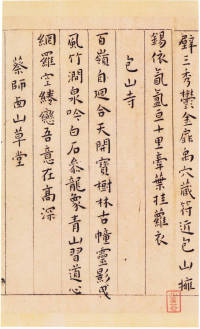 壁三秀鬱金庭禹穴藏符近包山擁
錫依氤氳亘十里牽葉挂蘿衣
包山寺
百嶺自迴合天開寶樹林古幢靈影
風竹澗泉吟白石參龍象青山習道心
網羅空綣戀吾意在高深
蔡師西山草堂